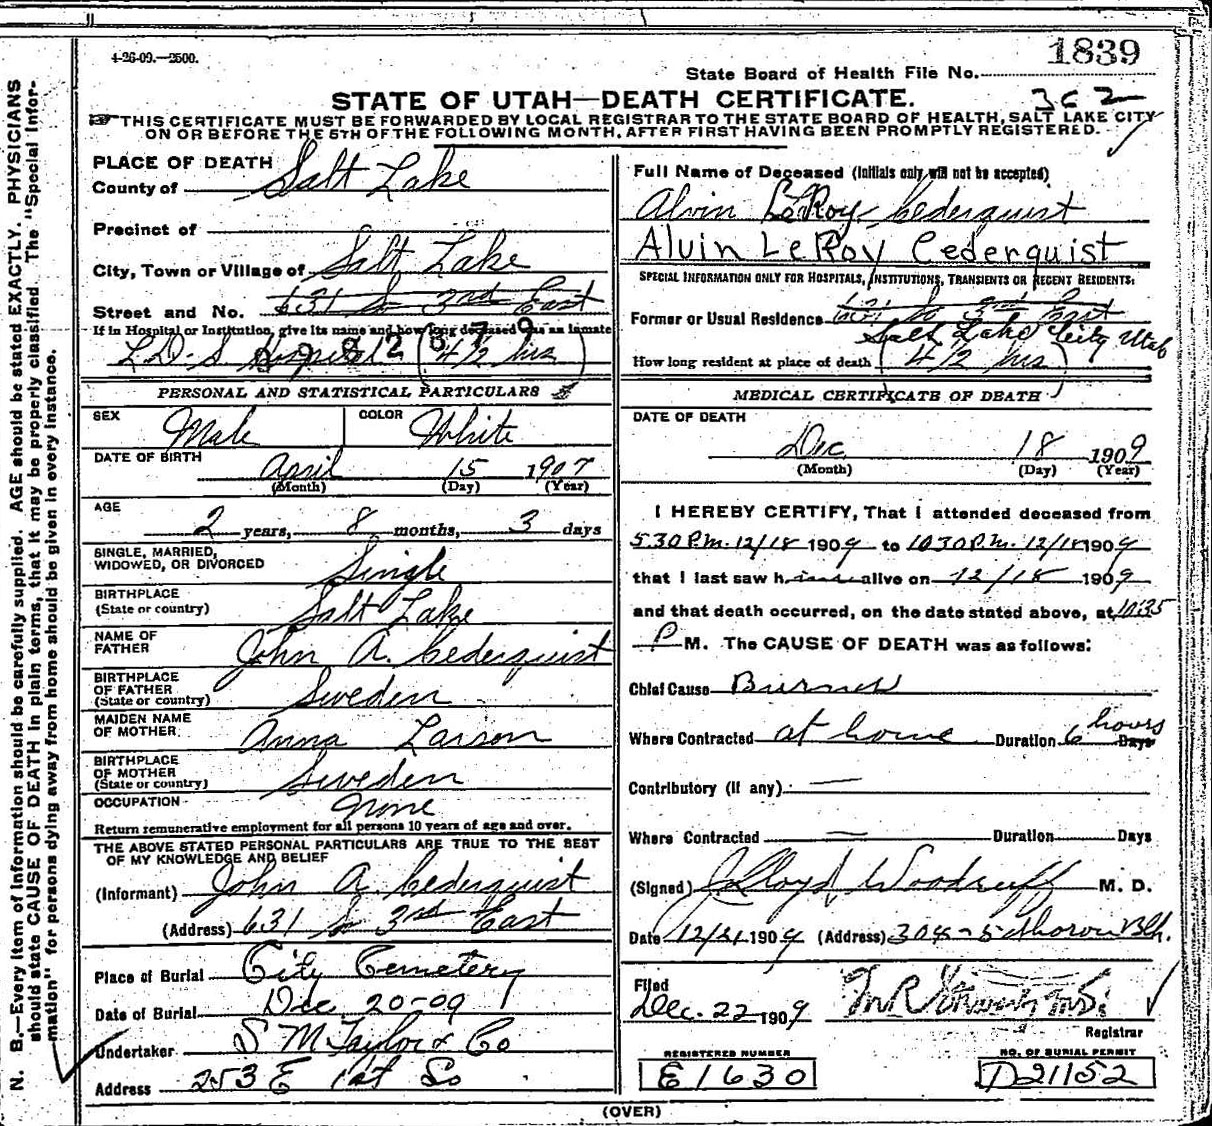 4-26-09.—2500.
1839
State Board of Health File No.
STATE OF UTAH—DEATH CERTIFICATE.
3c2
THIS CERTIFICATE MUST BE FORWARDED BY LOCAL REGISTRAR TO THE STATE BOARD OF HEALTH, SALT LAKE CITY
ON OR BEFORE THE 5TH OF THE FOLLOWING MONTH, AFTER FIRST HAVING BEEN PROMPTLY REGISTERED.
N. B.—Every item of information should be carefully supplied. AGE should be stated EXACTLY. PHYSICIANS
should state CAUSE OF DEATH in plain terms, that it may be properly classified. The "Special Infor-
mation" for persons dying away from home should be given in every instance.
PLACE OF DEATH
County of Salt Lake
Precinct of
City, Town or Village of Salt Lake
Street and No. 631 So 3rd East
If in Hospital or Institution, give its name and how long deceased was an inmate
L.D.S Hospital (4 1/2 hrs)
PERSONAL AND STATISTICAL PARTICULARS
SEX Male COLOR White
DATE OF BIRTH
April 15 1907
(Month) (Day) (Year)
AGE
2 years, 8 months, 3 days
SINGLE, MARRIED,
WIDOWED, OR DIVORCED Single
BIRTHPLACE
(State or country) Salt Lake
NAME OF
FATHER John A. Cederquist
BIRTHPLACE
OF FATHER
(State or country) Sweden
MAIDEN NAME
OF MOTHER Anna Larson
BIRTHPLACE
OF MOTHER
(State or country) Sweden
OCCUPATION None
Return remunerative employment for all persons 10 years of age and over.
THE ABOVE STATED PERSONAL PARTICULARS ARE TRUE TO THE BEST
OF MY KNOWLEDGE AND BELIEF
(Informant) John A Cederquist
(Address) 631 So 3rd East
Place of Burial City Cemetery
Date of Burial Dec. 20-09
Undertaker S M Taylor & Co
Address 253 E 1st So
Full Name of Deceased (Initials only will not be accepted)
Alvin LeRoy Cederquist
Alvin LeRoy Cederquist
SPECIAL INFORMATION ONLY FOR HOSPITALS, INSTITUTIONS, TRANSIENTS OR RECENT RESIDENTS:
Former or Usual Residence 631 So 3rd East
Salt Lake City Utah
How long resident at place of death (4 1/2 hrs)
MEDICAL CERTIFICATE OF DEATH
DATE OF DEATH
Dec 18 1909
(Month) (Day) (Year)
I HEREBY CERTIFY, That I attended deceased from
5.30 P.M. 12/18 1909 to 10.30 P.M. 12/18 1909
that I last saw him alive on 12/18 1909
and that death occurred, on the date stated above, at 10:35
P M. The CAUSE OF DEATH was as follows:
Chief Cause Burned
Where Contracted at home Duration 6 hours Days
Contributory (if any) —
Where Contracted — Duration Days
(Signed) J Lloyd Woodruff M. D.
Date 12/21 1909 (Address)
Filed
Dec. 22 1909
Registrar
REGISTERED NUMBER
E1630
NO. OF BURIAL PERMIT
D21152
(OVER)